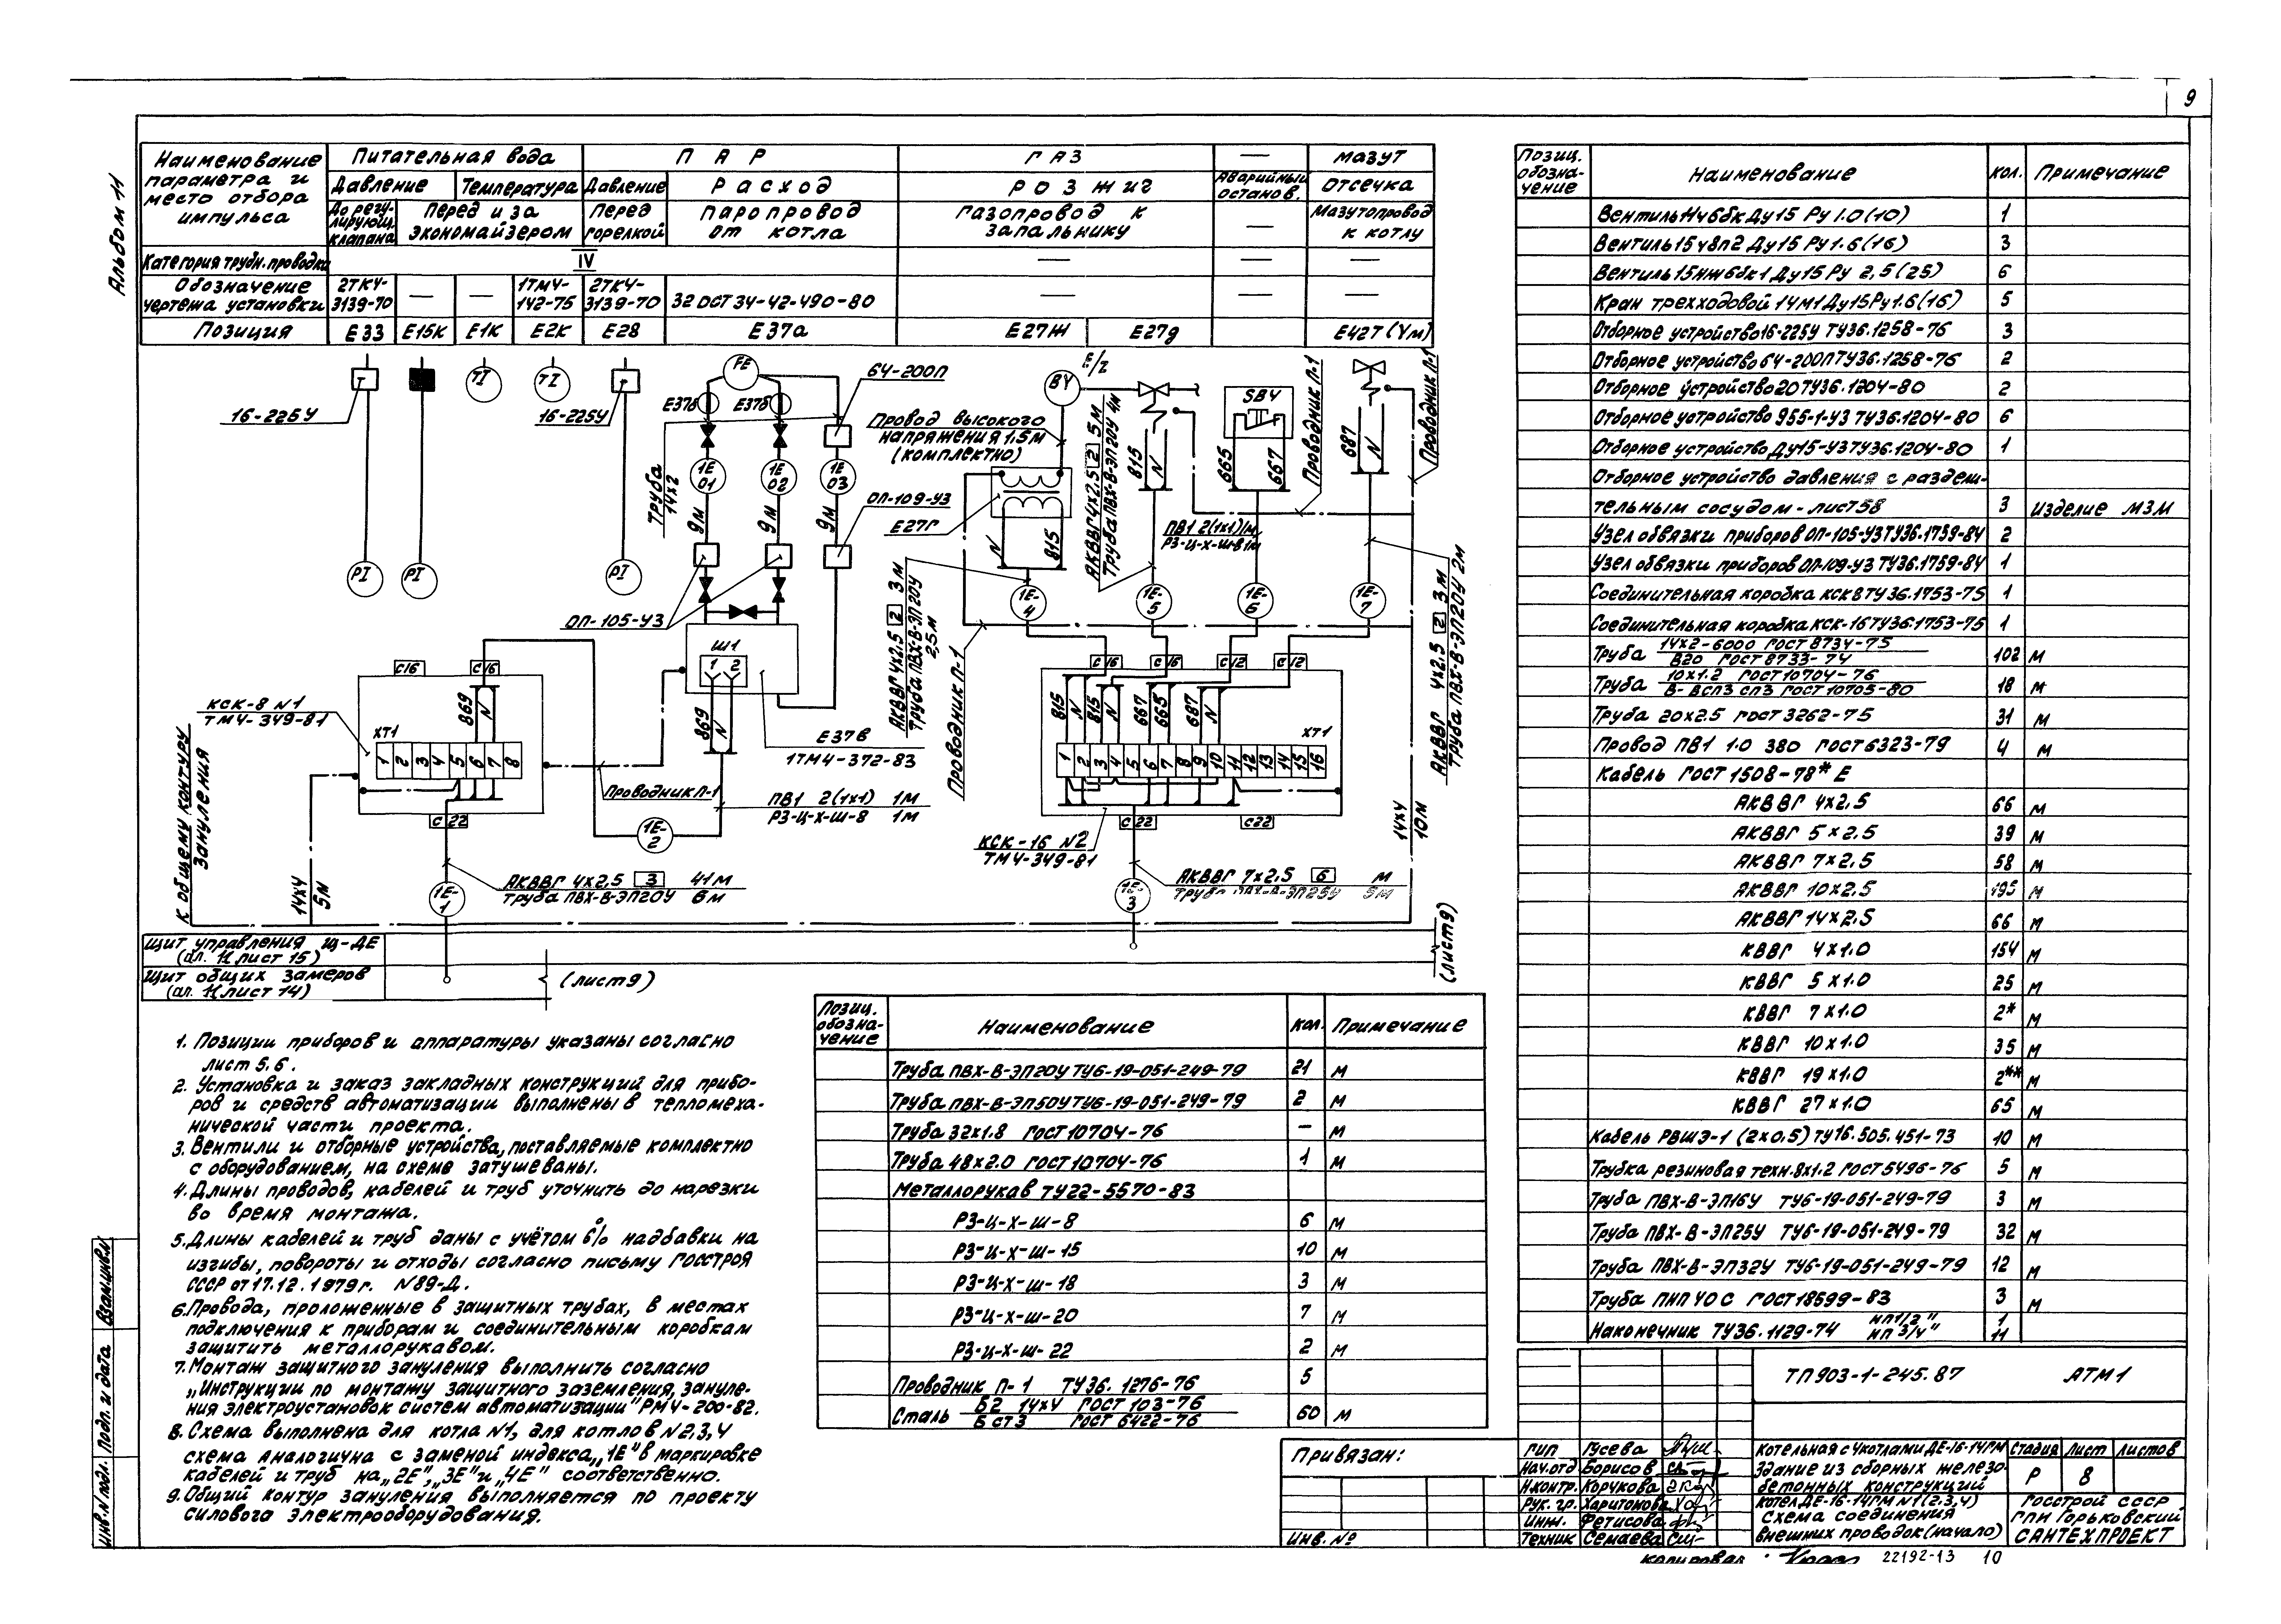 9
Альбом 11
Наименование параметра и место отбора импульса
Питательная вода
ПАР
ГАЗ
—
МАЗУТ
Давление
Температура
Давление
Расход
РОЗЖИГ
Аварийный останов.
Отсечка
До регулирующ. клапана
Перед и за экономайзером
Перед горелкой
Паропровод от котла
Газопровод к запальнику
—
Мазутопровод к котлу
Категория трубн. проводки
IV
—
—
—
Обозначение чертежа установки
2ТК4-3139-70
—
—
1ТМ4-142-75
2ТК4-3139-70
32 ОСТ 34-42-490-80
—
—
—
Позиция
Е33
Е15К
Е1К
Е2К
Е28
Е37а
Е27Ж
Е27д
Е42Т (Ум)
16-225У
TI
TI
16-225У
PI
PI
PI
FE
Е37б
Е37б
64-200П
Труба 14х2
1Е 01
1Е 02
1Е 03
9м
9м
9м
ОП-105-У3
ОП-109-У3
Провод высокого напряжения 1,5м (комплектно)
Е27Г
BY
E/Z
N
815
АКВВГ 4х2,5 2 5м
Труба ПВХ-В-ЭП20У 4м
815
N
SB4
665
667
Проводник П-1
687
N
Проводник П-1
ПВ1 2(1х1) 1м
РЗ-Ц-Х-Ш-8 1м
АКВВГ 4х2,5 2 3м
Труба ПВХ-В-ЭП20У 2,5м
1Е-4
1Е-5
1Е-6
1Е-7
АКВВГ 4х2,5 2 3м
Труба ПВХ-В-ЭП20У 2м
Проводник П-1
С16
С16
869
N
КСК-8 N1
ТМ4-349-81
ХТ1
1 2 3 4 5 6 7 8
С22
Ш1
1 2
869
N
Е37в
1ТМ4-372-83
Проводник П-1
ПВ1 2(1х1) 1м
РЗ-Ц-Х-Ш-8 1м
1Е-2
К общему контуру зануления
14х4
5м
АКВВГ 4х2,5 3 41м
Труба ПВХ-В-ЭП20У 6м
1Е-1
С16
С16
С12
С12
815
N
815
N
667
665
687
N
ХТ1
1 2 3 4 5 6 7 8 9 10 11 12 13 14 15 16
С22
С22
КСК-16 N2
ТМ4-349-81
АКВВГ 7х2,5 6 м
Труба ПВХ-В-ЭП25У 5м
1Е-3
14х4
10м
(лист9)
Щит управления Щ-ДЕ
Щит общих замеров
(лист9)
1. Позиции приборов и аппаратуры указаны согласно
лист 5,6.
2. Установка и заказ закладных конструкций для прибо-
ров и средств автоматизации выполнены в тепломеха-
нической части проекта.
3. Вентили и отборные устройства, поставляемые комплектно
с оборудованием, на схеме затушеваны.
4. Длины проводов, кабелей и труб уточнить до нарезки
во время монтажа.
5. Длины кабелей и труб даны с учётом 6% надбавки на
изгибы, повороты и отходы согласно письму Госстроя
СССР от 17.12.1979г. N89-Д.
6. Провода, проложенные в защитных трубах, в местах
подключения к приборам и соединительным коробкам
защитить металлорукавом.
7. Монтаж защитного зануления выполнить согласно
„Инструкции по монтажу защитного заземления, зануле-
ния электроустановок систем автоматизации" РМ4-200-82.
8. Схема выполнена для котла N1, для котлов N2,3,4
схема аналогична с заменой индекса „1Е" в маркировке
кабелей и труб на „2Е", „3Е" и „4Е" соответственно.
9. Общий контур зануления выполняется по проекту
силового электрооборудования.
Позиц. обозна-чение
Наименование
кол.
Примечание
Труба ПВХ-В-ЭП20У ТУ6-19-051-249-79 21 м
Труба ПВХ-В-ЭП50У ТУ6-19-051-249-79 2 м
Труба 32х1.8 ГОСТ 10704-76 — м
Труба 48х2.0 ГОСТ 10704-76 1 м
Металлорукав ТУ22-5570-83
РЗ-Ц-Х-Ш-8 6 м
РЗ-Ц-Х-Ш-15 10 м
РЗ-Ц-Х-Ш-18 3 м
РЗ-Ц-Х-Ш-20 7 м
РЗ-Ц-Х-Ш-22 2 м
Проводник П-1 ТУ36.1276-76 5
Сталь Б2 14х4 ГОСТ 103-76 / Б СТ3 ГОСТ 6422-76 60 м
Позиц. обозна-чение
Наименование
кол.
Примечание
Вентиль Нч6бк Ду15 Ру 1.0(10) 1
Вентиль 15ч8п2 Ду15 Ру1.6(16) 3
Вентиль 15нж6бк1 Ду15 Ру 2,5(25) 6
Кран трехходовой 14М1 Ду15 Ру1.6(16) 5
Отборное устройство 16-225У ТУ36.1258-76 3
Отборное устройство 64-200П ТУ36.1258-76 2
Отборное устройство 20 ТУ36.1204-80 2
Отборное устройство 955-1-У3 ТУ36.1204-80 6
Отборное устройство Ду15-У3 ТУ36.1204-80 1
Отборное устройство давления с раздели-
тельным сосудом - лист 58 3 Изделие МЗМ
Узел обвязки приборов ОП-105-У3 ТУ36.1759-84 2
Узел обвязки приборов ОП-109-У3 ТУ36.1759-84 1
Соединительная коробка КСК8 ТУ36.1753-75 1
Соединительная коробка КСК-16 ТУ36.1753-75 1
Труба 14х2-6000 ГОСТ 8734-75 / В20 ГОСТ 8733-74 102 м
Труба 10х1.2 ГОСТ 10704-76 / В-ВСП3 СП3 ГОСТ 10705-80 18 м
Труба 20х2.5 ГОСТ 3262-75 31 м
Провод ПВ1 1.0 380 ГОСТ 6323-79 4 м
Кабель ГОСТ 1508-78* Е
АКВВГ 4х2,5 66 м
АКВВГ 5х2.5 39 м
АКВВГ 7х2,5 58 м
АКВВГ 10х2.5 195 м
АКВВГ 14х2.5 66 м
КВВГ 4х1.0 154 м
КВВГ 5х1.0 25 м
КВВГ 7х1.0 2* м
КВВГ 10х1.0 35 м
КВВГ 19х1.0 2** м
КВВГ 27х1.0 65 м
Кабель РВШЭ-1 (2х0,5) ТУ16.505.451-73 10 м
Трубка резиновая техн. 8х1.2 ГОСТ 5496-76 5 м
Труба ПВХ-В-ЭП16У ТУ6-19-051-249-79 3 м
Труба ПВХ-В-ЭП25У ТУ6-19-051-249-79 32 м
Труба ПВХ-В-ЭП32У ТУ6-19-051-249-79 12 м
Труба ПНП 40 С ГОСТ 18599-83 3 м
Наконечник ТУ36.1129-74 НП1/2" 1
НП 3/4" 11
ТП903-1-245.87 АТМ1
Привязан:
Инв. №
ГИП Гусева
Нач.отд Борисов
Н.контр. Корчкова
Рук. гр. Харитонова
Инж. Фетисова
Техник Семаева
Котельная с 4 котлами ДЕ-16-14ГМ
Здание из сборных железо-
бетонных конструкций
Котел ДЕ-16-14ГМ N1(2,3,4)
Схема соединения
внешних проводок (начало)
Стадия Лист Листов
Р 8
Госстрой СССР
ГПИ Горьковский
САНТЕХПРОЕКТ
Взам.инв.N
Подп. и дата
Инв. N подл.
Копировал
22192-13 10